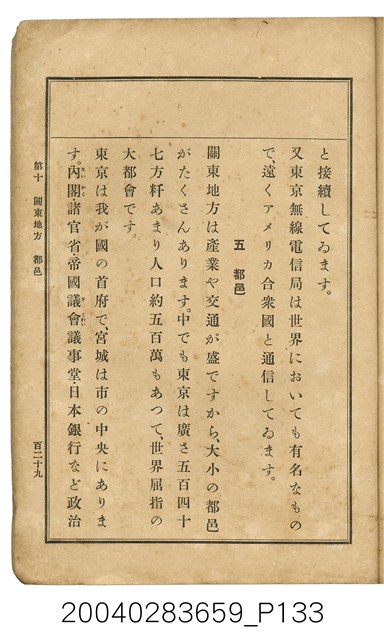 と接續してゐます。
又東京無線電信局は世界においても有名なもの
で、遠くアメリカ合衆國と通信してゐます。
五 都邑
關東地方は產業や交通が盛ですから、大小の都邑
がたくさんあります。中でも東京は廣さ五百四十
七方粁あまり人口約五百萬もあつて、世界屈指の
大都會です。
東京は我が國の首府で、宮城は市の中央にありま
す。內閣諸官省・帝國議會議事堂・日本銀行など政治
第十 關東地方 都邑
百二十九
20040283659_P133